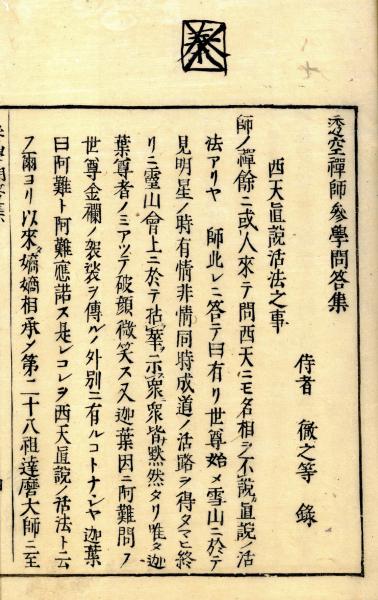 透空禪師參學問答集
侍者 徹之等 錄
西天直說活法之事
師ノ禪餘ニ或人來テ問西天ニモ名相ヲ不說直說ノ活
法アリヤ 師此レニ答テ曰有リ世尊始メ雪山ニ於テ
見明星ノ時有情非情同時成道ノ活路ヲ得タマヒ終
リニ靈山會上ニ於テ拈華示衆衆皆黙然タリ唯タ迦
葉尊者ノミアツテ破顔微笑ス又迦葉因ニ阿難問フ
世尊金襴ノ袈裟ヲ傳ルノ外別ニ有ルコトナンヤ迦葉
曰阿難ト阿難應諾ス是レコレヲ西天直說ノ活法ト云
フ爾ヨリ以來嫡嫡相承ノ第二十八祖達磨大師ニ至